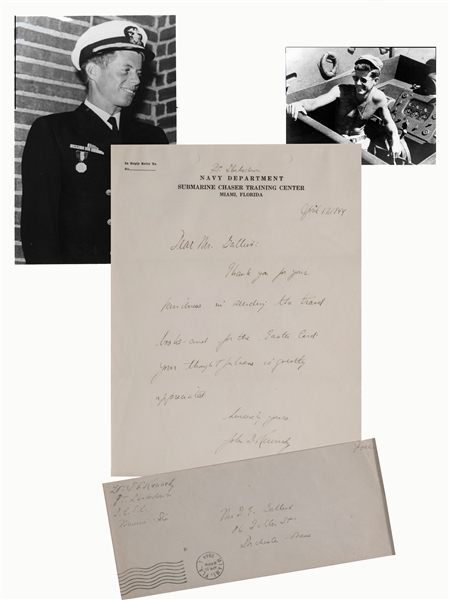 In Reply Refer To
No.
NAVY DEPARTMENT
SUBMARINE CHASER TRAINING CENTER
MIAMI, FLORIDA
April 1944
Dear Mr.
Thank you for your
kindness in sending the travel
books and for the Easter Card
your thoughtfulness is greatly
appreciated
Sincerely yours
John F. Kennedy
Free
Kennedy
S.C.T.C.
Miami Fla
Dorchester Mass